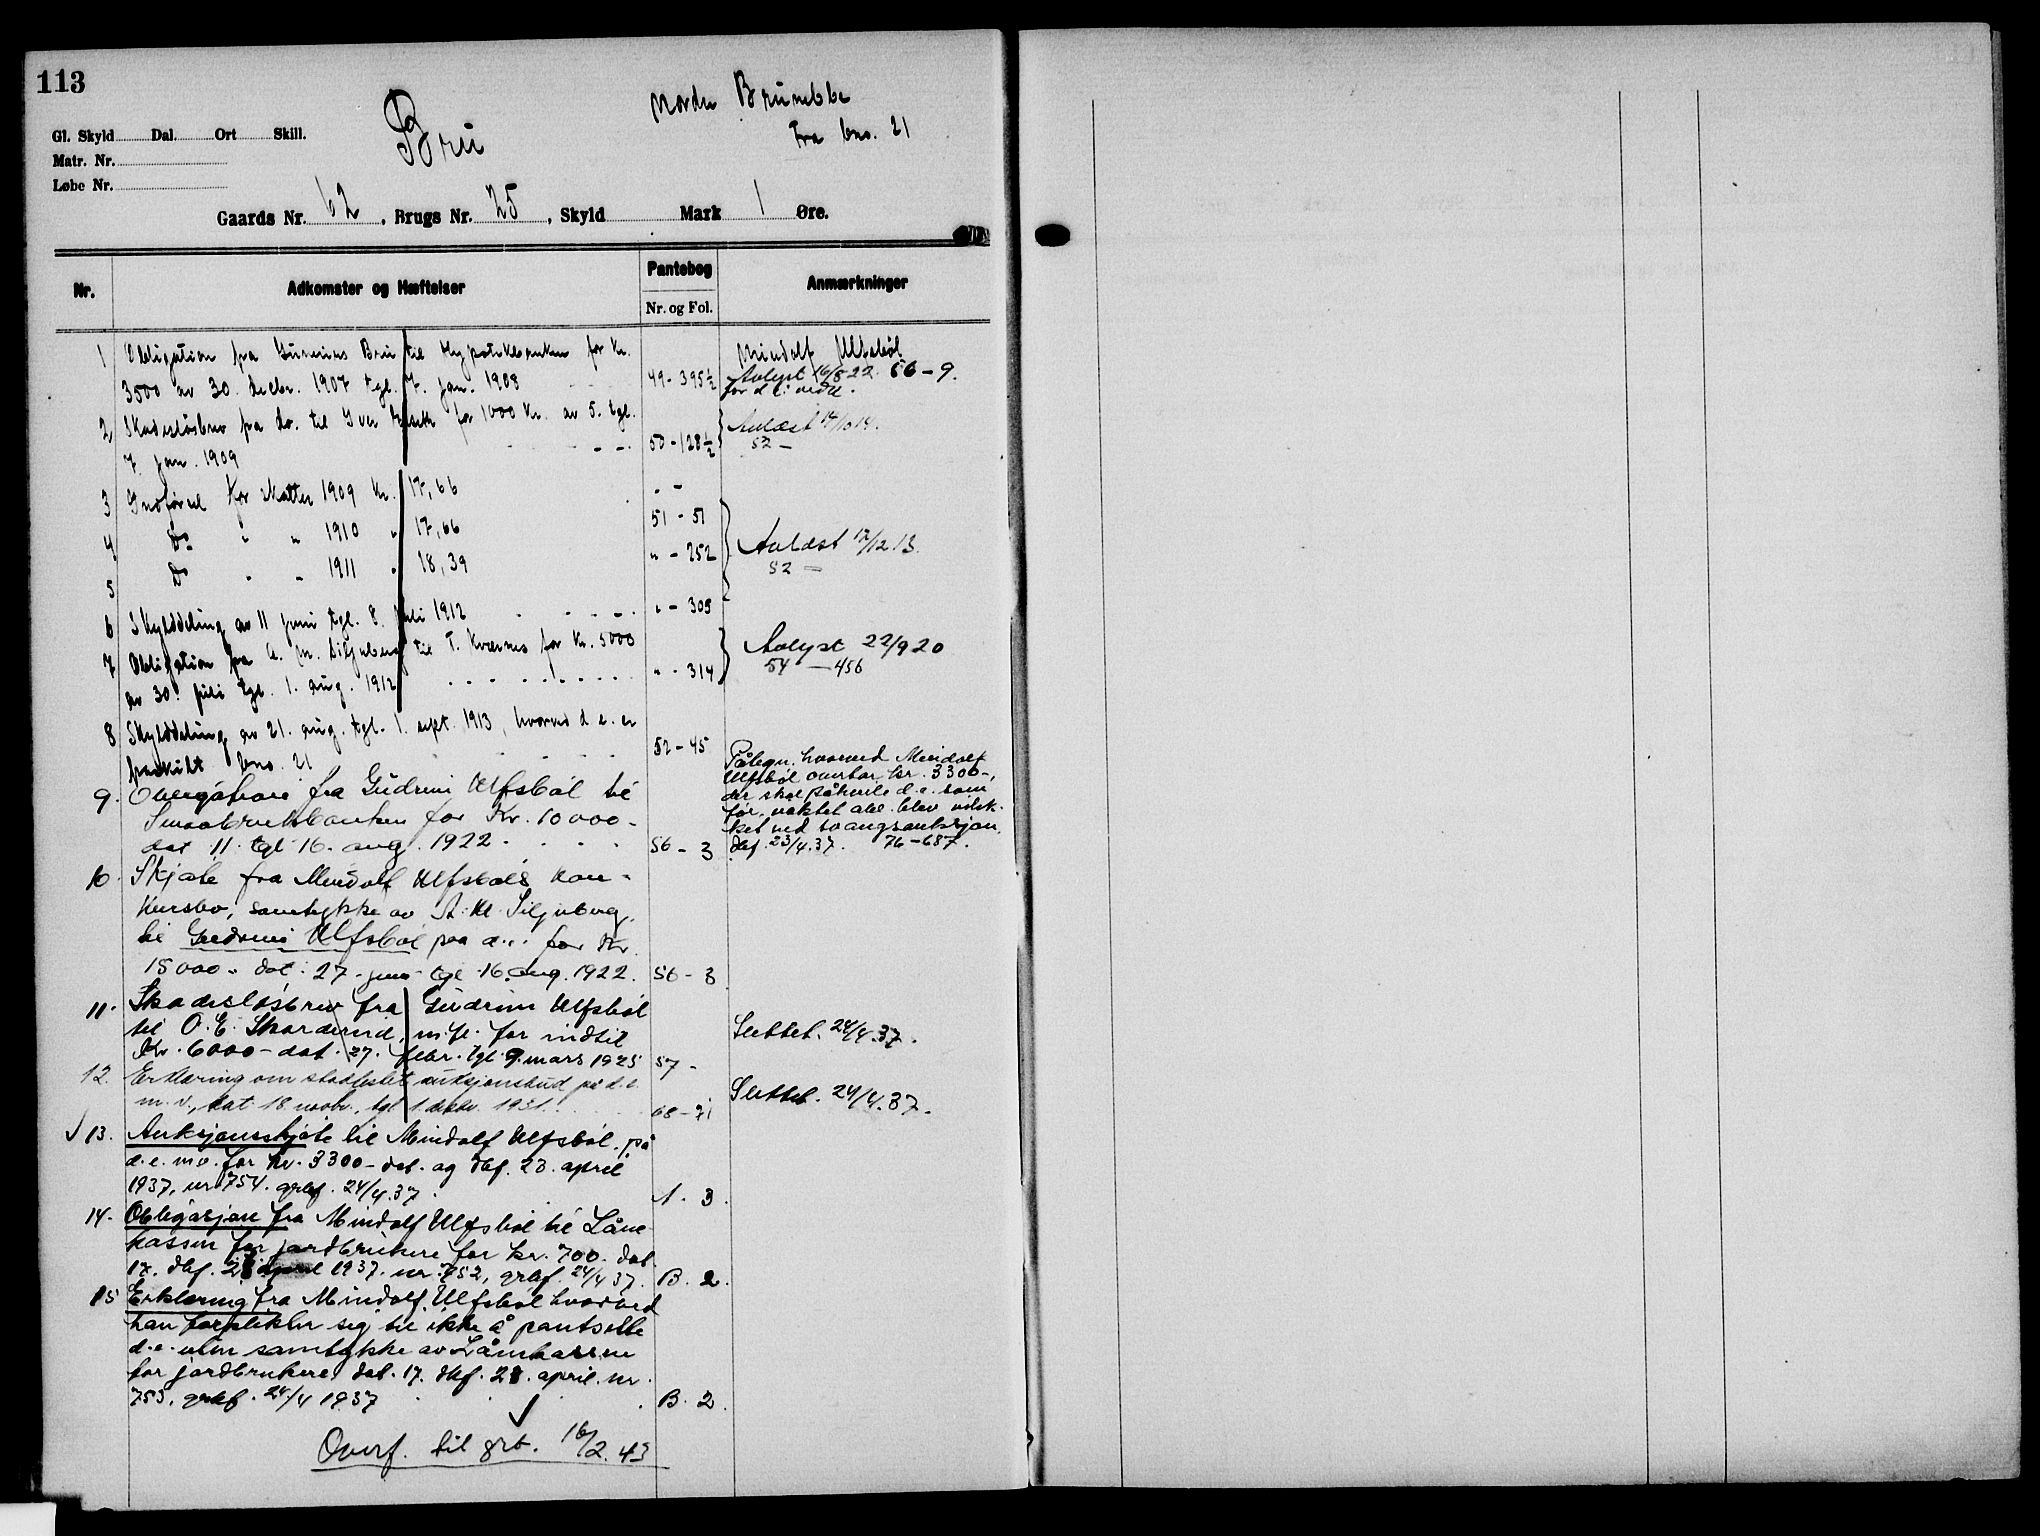 113
Nordre
Bru
Fra bno. 21
Gl. Skyld Dal. Ort Skill.
Matr. Nr.
Løbe Nr.
Gaards Nr. 62, Brugs Nr. 25, Skyld Mark 1 Øre.
Nr. Adkomster og Hæftelser Pantebog Nr. og Fol. Anmærkninger
1 Obligation fra Gunerius Bru til Hypotekbanken for Kr.
3500 av 30. decbr. 1907 tgl. 7. jan. 1908 49-395½
Avlyst 16/8 22. 56-9.
for d. e. vedk.
2 Skadesløsbrev fra do. til Iver for 1000 Kr. av 5. tgl.
7. jan. 1909 50-128½
Avlæst 17/10 14.
52 —
3 Indførsel for skatter 1909 Kr. 17,66 51-51
4 Do " " 1910 " 17,66 " - 252
5 Do " " 1911 " 18,39 " - 305
Avlæst 12/12 13.
52 —
6 Skylddeling av 11 juni tgl. 8. juli 1912
7 Obligation fra A. M. Siljuberg til T. Kværnes for Kr. 5000
av 30. juli tgl. 1. aug. 1912 " - 314
Avlyst 22/9 20
54 — 456
8 Skylddeling av 21. aug. tgl. 1. sept. 1913, hvorved d. e. er
fraskilt bno. 21 52-45
9. Obligation fra Gudrun Ulfsbøl til
Smaabrukbanken for Kr. 10000-
dat 11. tgl 16. aug. 1922. 56-3
Påtegn. hvorved Mindolf
Ulfsbøl overtar kr. 3300-,
der skal påhvile d.e. som
før,
ket ved tvangsauksjon.
dbf. 23/4.37. 76-687.
10. Skjøte fra Mindolf Ulfsbøls kon-
kursbo, samtykke av A. M. Siljuberg,
til Gudrun Ulfsbøl paa d.e. for Kr
15000.- dat. 27. juni tgl. 16. aug. 1922. 56-3
11. Skadesløsbrev fra Gudrun Ulfsbøl
til O. E. Skarderud m.fl. for indtil
Kr. 6000- dat. 27. febr. tgl. 9. mars 1925 57-
Slettet. 24/4.37.
12. Erklæring om stadfestet auksjonsbud på d.e.
m.v., dat 18 novbr., tgl 1 decbr. 1931. 68-71
Slettet. 24/4.37.
13. Auksjonsskjøte til Mindolf Ulfsbøl på
d.e. m.v. for kr. 3300- dat. og dbf. 23. april
1937, nr 754. grbf. 24/4.37. A. 3.
14. Obligasjon fra Mindolf Ulfsbøl til Låne-
kassen for jordbrukere for kr. 700. dat.
17. dbf. 23 april 1937. nr. 752, grbf. 24/4 37. B. 2.
15 Erklæring fra Mindolf Ulfsbøl hvorved
han forplikter sig til ikke å pantsette
d.e. uten samtykke av Lånekassen
for jordbrukere dat. 17. dbf. 23. april. nr.
753, grbf. 24/4 1937 B. 2.
Overf. til grb. 16/2.43